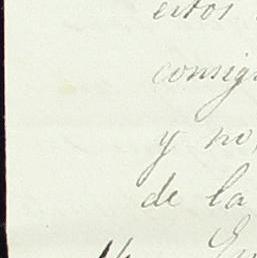 estos
consig
y no
de la